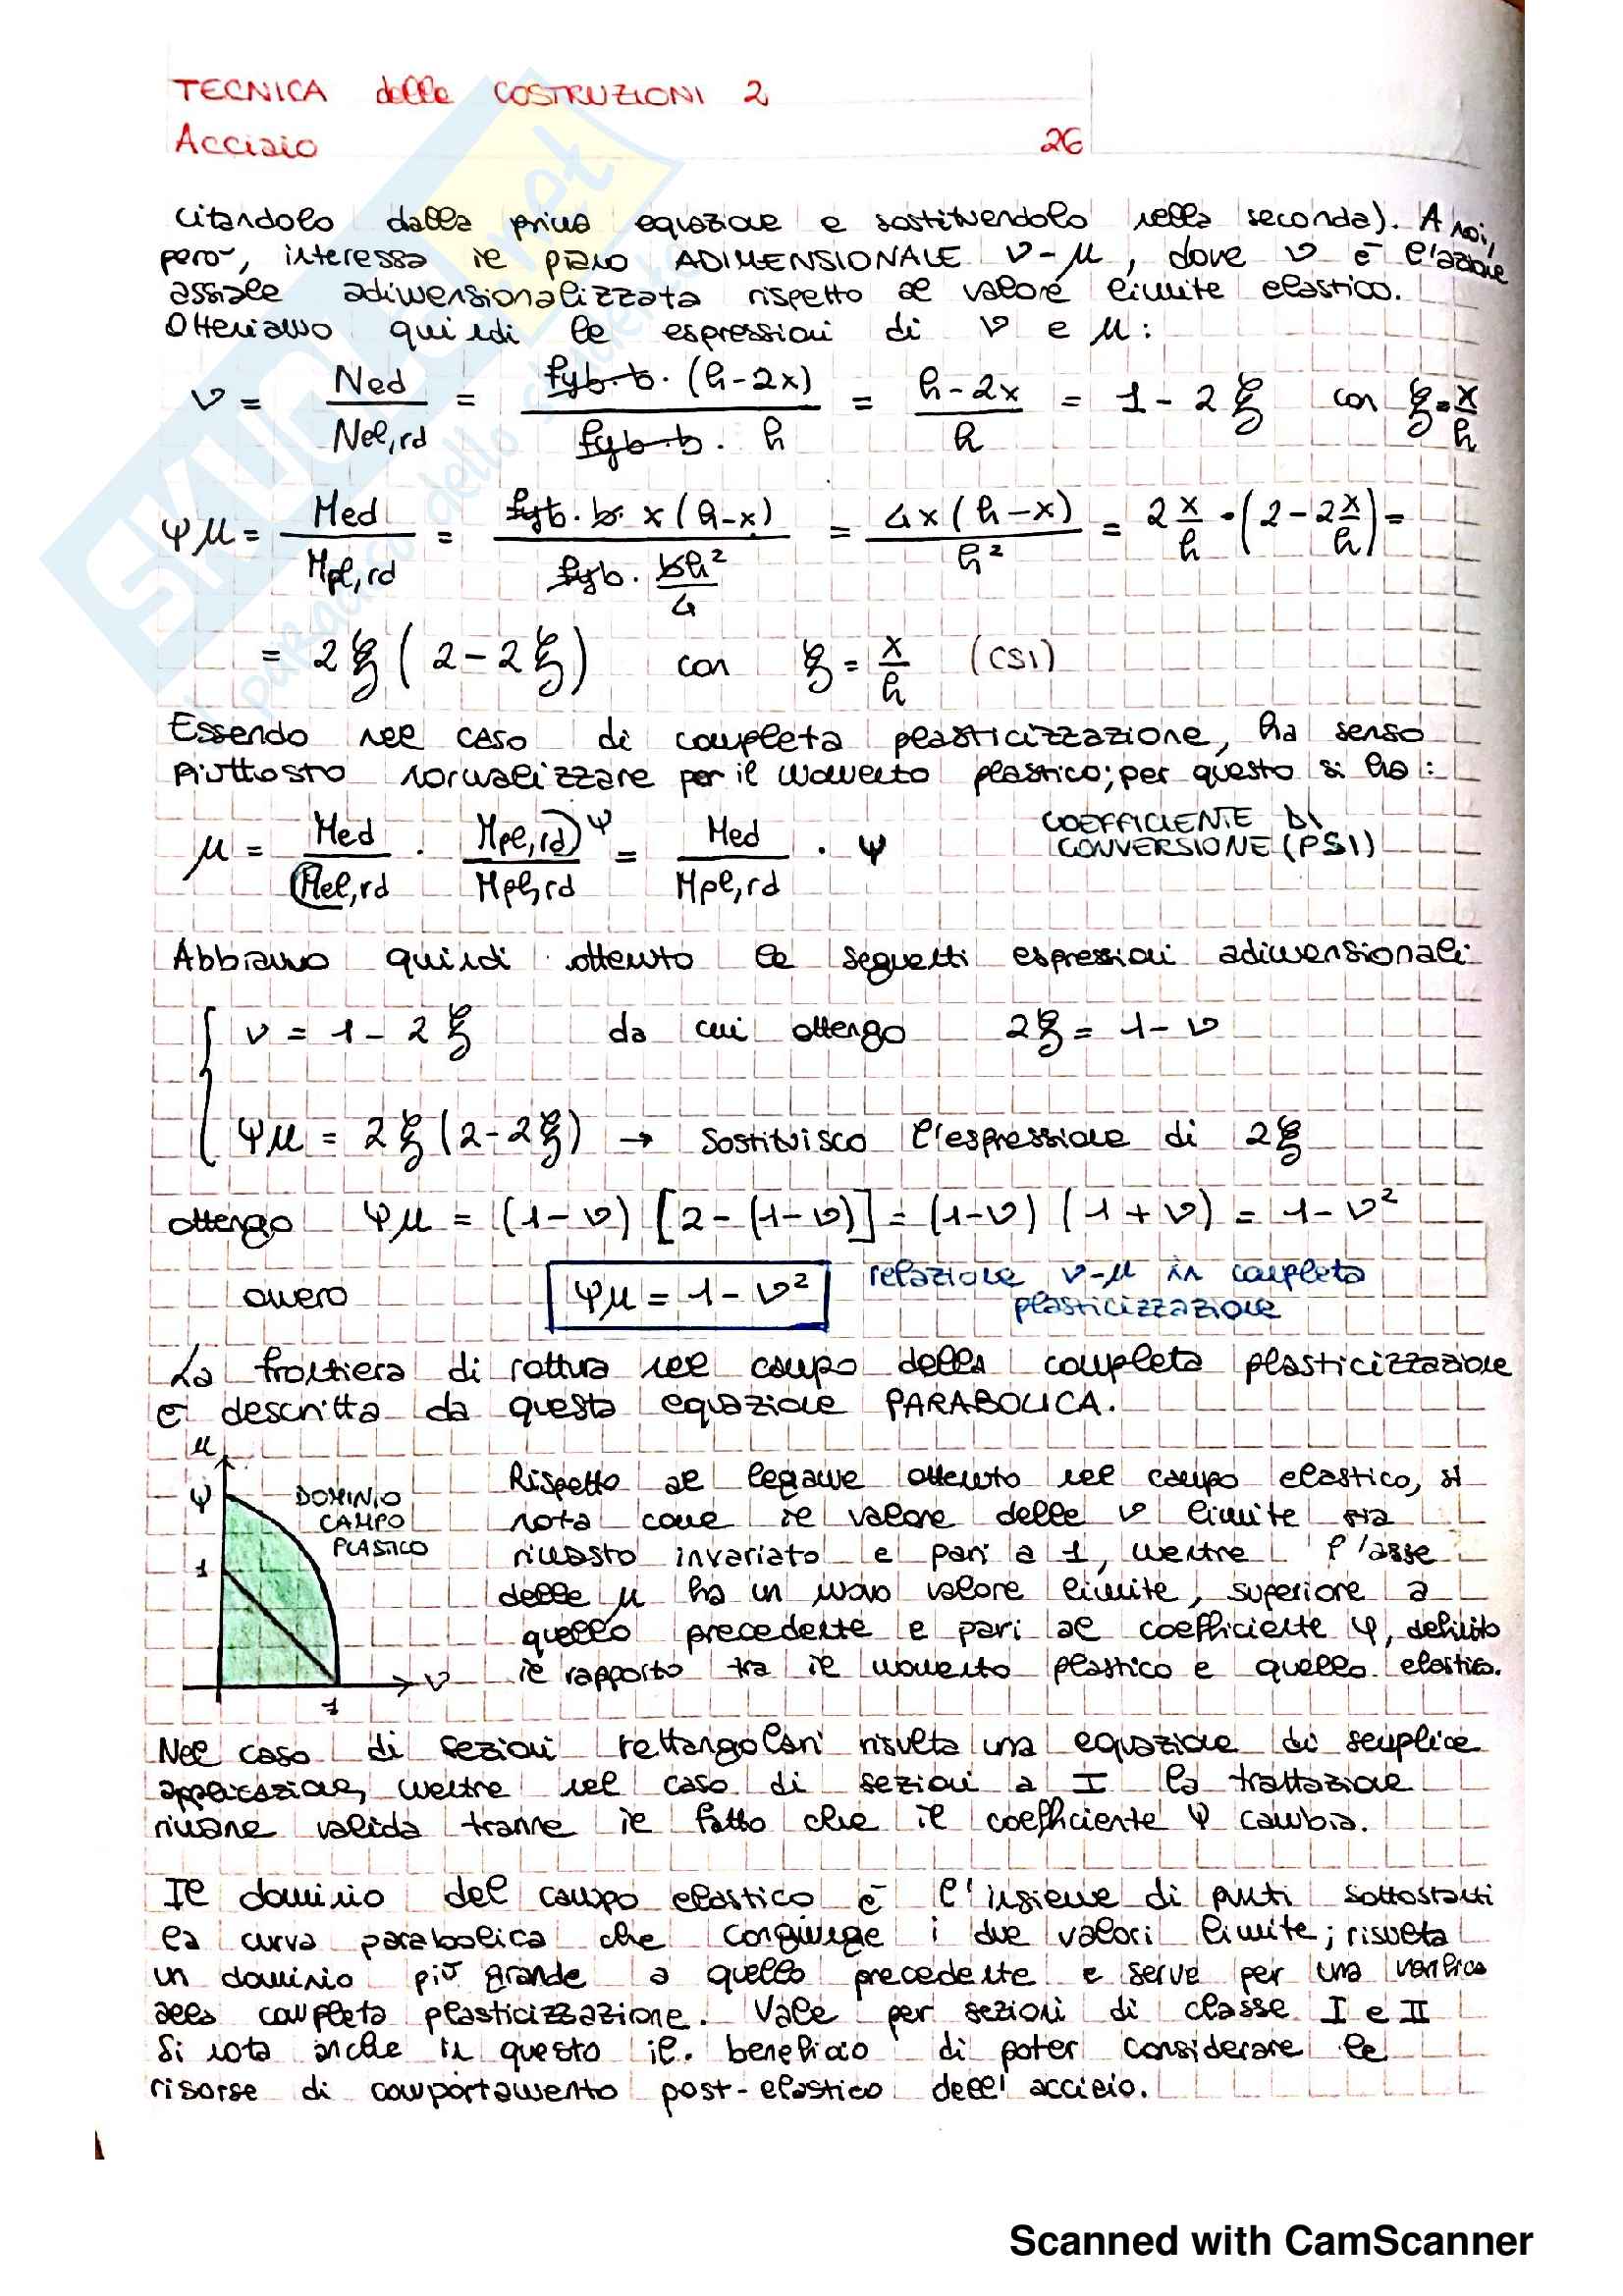 TECNICA delle COSTRUZIONI 2
Acciaio 26
citandolo dalla prima equazione e sostituendolo nella seconda). A noi,
però, interessa il piano ADIMENSIONALE ν-μ, dove ν è l'azione
assiale adimensionalizzata rispetto al valore limite elastico.
Otteniamo quindi le espressioni di ν e μ:
ν = Ned/Nel,rd = fyb·b·(h-2x)/fyb·b·h = h-2x/h = 1-2ξ con ξ=x/h
ψμ = Med/Mpl,rd = fyb·b·x(h-x)/fyb·bh²/4 = 4x(h-x)/h² = 2x/h·(2-2x/h)=
= 2ξ(2-2ξ) con ξ=x/h (CSI)
Essendo nel caso di completa plasticizzazione, ha senso
piuttosto normalizzare per il momento plastico; per questo si ha:
μ = Med/Mel,rd · Mpl,rd/Mpl,rd ψ = Med/Mpl,rd · ψ COEFFICIENTE DI
CONVERSIONE (PSI)
Abbiamo quindi ottenuto le seguenti espressioni adimensionali
ν = 1-2ξ da cui ottengo 2ξ = 1-ν
ψμ = 2ξ(2-2ξ) → sostituisco l'espressione di 2ξ
ottengo ψμ = (1-ν)[2-(1-ν)] = (1-ν)(1+ν) = 1-ν²
ovvero ψμ = 1-ν² relazione ν-μ in completa
plasticizzazione
La frontiera di rottura nel campo della completa plasticizzazione
è descritta da questa equazione PARABOLICA.
μ
ψ
DOMINIO
CAMPO
PLASTICO
1
ν
1
Rispetto al legame ottenuto nel campo elastico, si
nota come il valore delle ν limite sia
rimasto invariato e pari a 1, mentre l'asse
delle μ ha un nuovo valore limite, superiore a
quello precedente e pari al coefficiente ψ, definito
il rapporto tra il momento plastico e quello elastico.
Nel caso di sezioni rettangolari risulta una equazione di semplice
applicazione, mentre nel caso di sezioni a I la trattazione
rimane valida tranne il fatto che il coefficiente ψ cambia.
Il dominio del campo elastico è l'insieme di punti sottostanti
la curva parabolica che congiunge i due valori limite; risulta
un dominio più grande a quello precedente e serve per una verifica
alla completa plasticizzazione. Vale per sezioni di classe I e II
Si nota anche in questo il beneficio di poter considerare le
risorse di comportamento post-elastico dell'acciaio.
Scanned with CamScanner